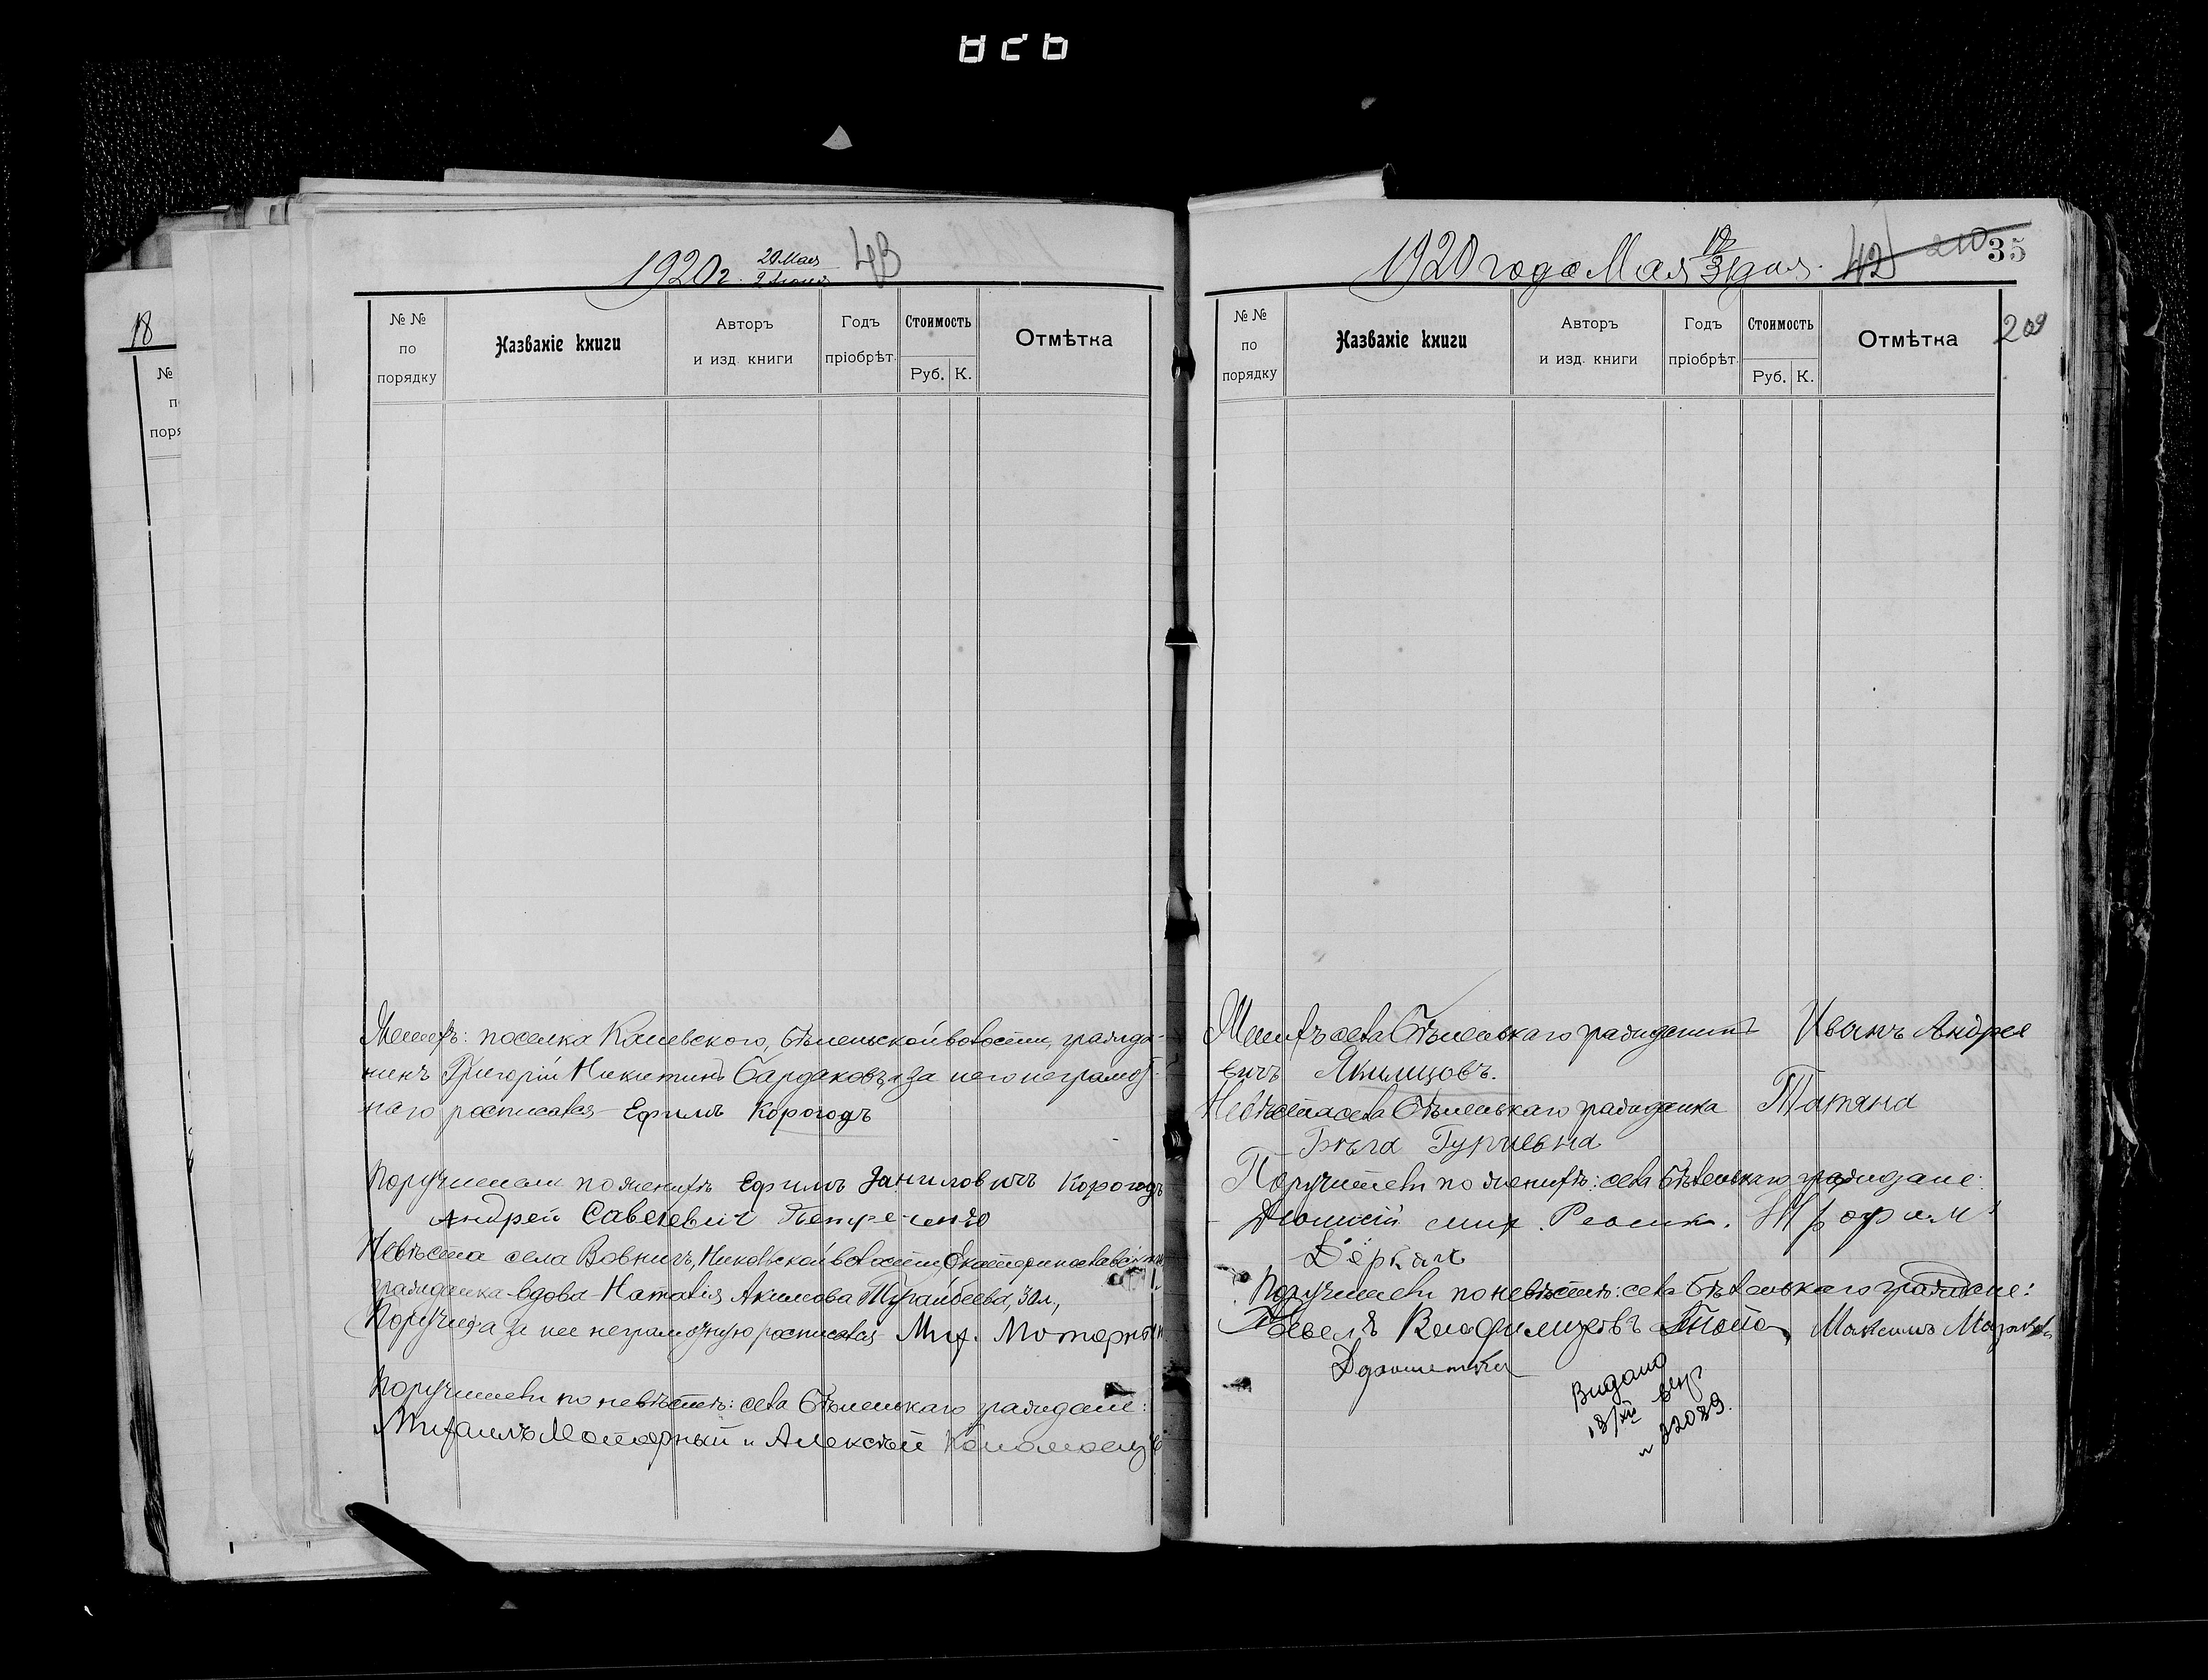 18
№
п
поря
1920 г. 20 Мая 43
2 Іюня
№ № по порядку
Названіе книги
Авторъ и изд. книги
Годъ пріобрѣт.
Стоимость
Руб. К.
Отмѣтка
Женихъ: поселка Каневского, Бѣленьской волости, гражда-
нинъ Григорій Никитинъ Бардаковъ, а за него неграмот-
наго росписался Ефимъ Корогодъ
Поручители по женихѣ Ефимъ Даниловичъ Корогодъ
Андрей Савелевич Петренко
Невѣста села Вовнигъ, Никольской волости, Екатеринославской
гражданка-вдова Наталія Акимова 30 л.,
а за нее неграмотную росписался Мих. Моторный
Поручители по невѣстѣ: села Бѣленькаго граждане:
Михаилъ Моторный и Алексѣй Коломоецъ
1920 года Мая 18/31 дня. 42 210 35
№ № по порядку
Названіе книги
Авторъ и изд. книги
Годъ пріобрѣт.
Стоимость
Руб. К.
Отмѣтка
209
Женихъ села Бѣленькаго гражданинъ Иванъ Андрее
вичъ Якимцовъ.
Невѣста села Бѣленькаго гражданка Татяна
Гуриевна
Поручители по женихѣ: села Бѣленькаго граждане:
Трофим
Деркач
Поручители по невѣстѣ: села Бѣленькаго граждане:
Максимъ
Видано
18/XII
№ 22089.